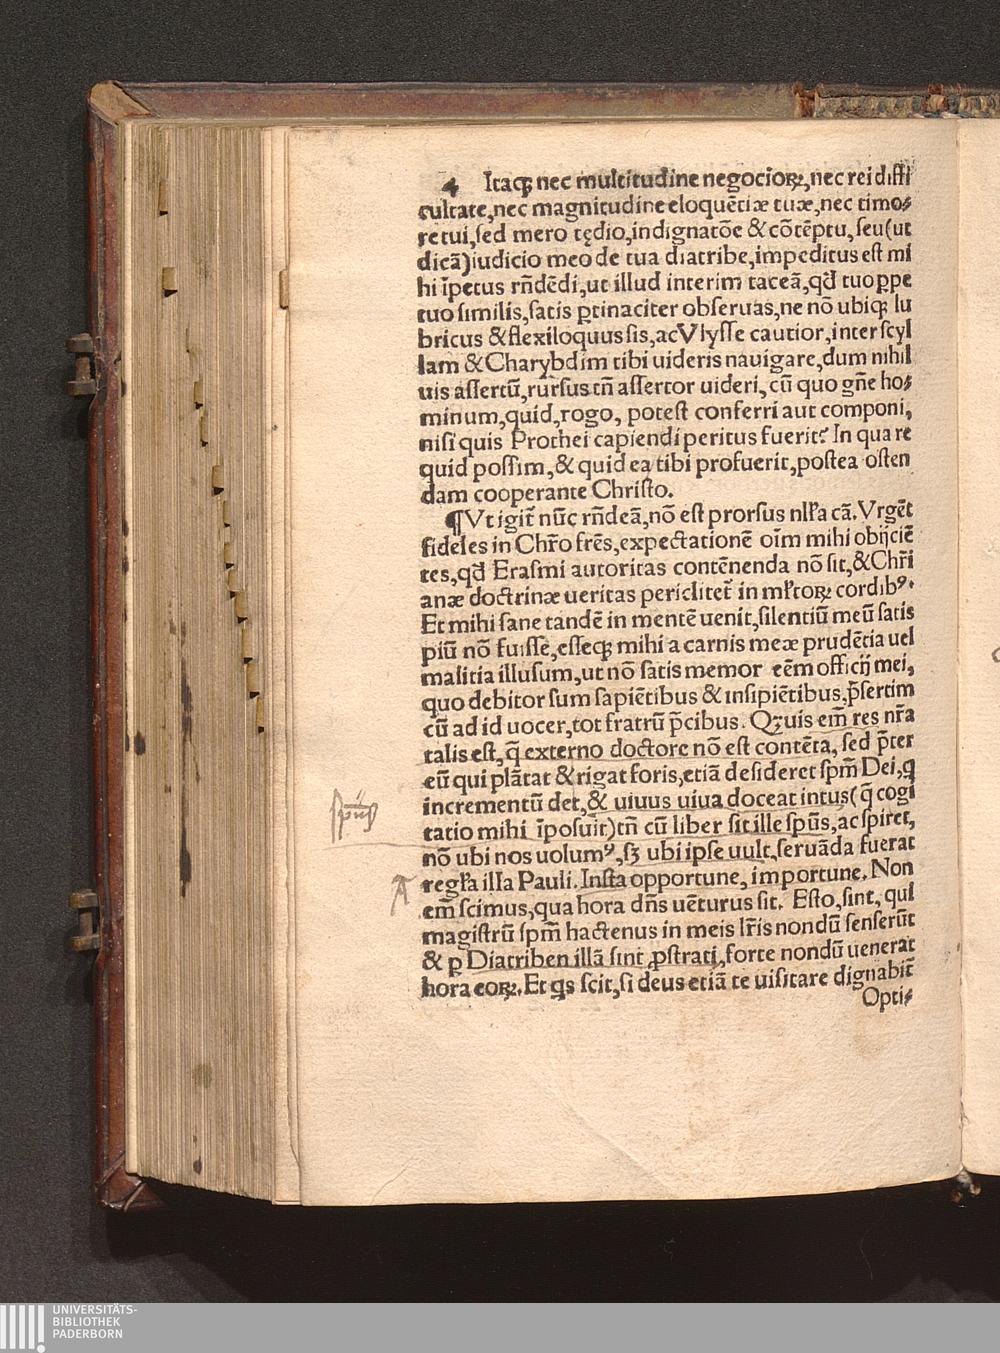 4 Itaqꝫ nec multitudine negocioꝝ, nec rei diffi
cultate, nec magnitudine eloquẽtiæ tuæ, nec timo⸗
re tui, sed mero tędio, indignatõe & cõtẽptu, seu (ut
dicã) iudicio meo de tua diatribe, impeditus est mi
hi ĩpetus rñdẽdi, ut illud interim taceã, qđ tuo ꝑpe
tuo similis, satis ꝑtinaciter obseruas, ne nõ ubiqꝫ lu
bricus & flexiloquus sis, ac Vlysse cautior, inter scyl
lam & Charybdim tibi uideris nauigare, dum nihil
uis assertũ, rursus tñ assertor uideri, cũ quo gñe ho⸗
minum, quid, rogo, potest conferri aut componi,
nisi quis Prothei capiendi peritus fuerit? In qua re
quid possim, & quid ea tibi profuerit, postea osten
dam cooperante Christo.
¶Vt igit̃ nũc rñdeã, nõ est prorsus nl̃la cã. Vrgẽt
fideles in Chr̃o frẽs, expectationẽ oĩm mihi obijciẽ
tes, qđ Erasmi autoritas contẽnenda nõ sit, & Chr̃i
anæ doctrinæ ueritas periclitet̃ in ml̃toꝝ cordibꝰ.
Et mihi sane tandẽ in mentẽ uenit, silentiũ meũ satis
piũ nõ fuisse, esseqꝫ mihi a carnis meæ prudẽtia uel
malitia illusum, ut nõ satis memor eẽm officij mei,
quo debitor sum sapiẽtibus & insipiẽtibus, p̃sertim
cũ ad id uocer, tot fratrũ p̃cibus. Qꝫuis em̃ res nr̃a
talis est, q̃ externo doctore nõ est contẽta, sed p̃ter
eũ qui plãtat & rigat foris, etiã desideret spm̃ Dei, ꝗ
incrementũ det, & uiuus uiua doceat intus (q̃ cogi
tatio mihi ĩposuit) tñ cũ liber sit ille spũs, ac spiret,
nõ ubi nos uolumꝰ, sꝫ ubi ipse uult, seruãda fuerat
regl̃a illa Pauli. Insta opportune, importune. Non
em̃ scimus, qua hora dñs uẽturus sit. Esto, sint, qui
magistrũ spm̃ hactenus in meis lr̃is nondũ senserũt
& ꝑ Diatriben illã sint ꝓstrati, forte nondũ uenerat
hora eoꝝ. Et ꝗs scit, si deus etiã te uisitare dignabit̃
Opti⸗
UNIVERSITÄTS-
BIBLIOTHEK
PADERBORN